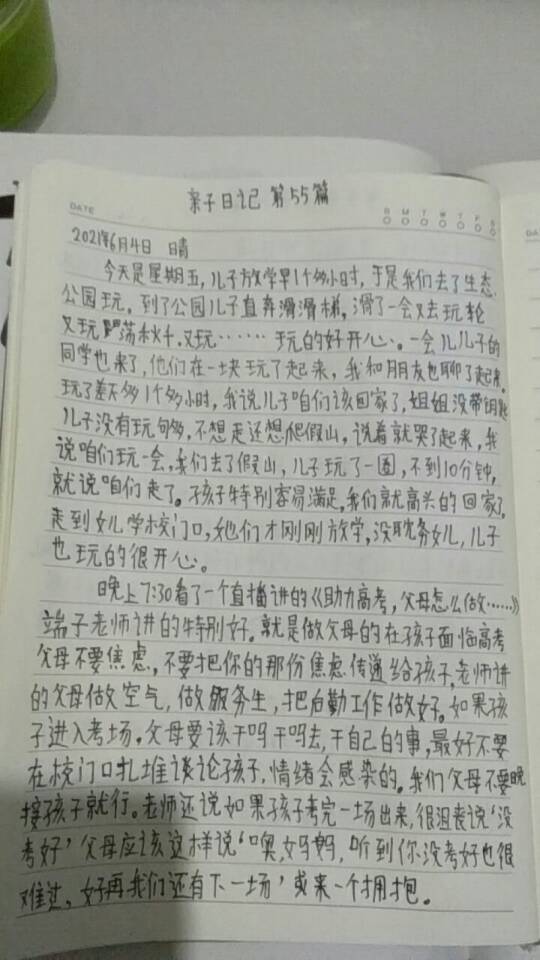 亲子日记 第55篇
DATE
S M T W T F S
2021年6月4日 晴
今天是星期五,儿子放学早1个多小时,于是我们去了生态
公园玩,到了公园儿子直奔滑滑梯,滑了一会又去玩轮
又玩荡秋千.又玩……玩的好开心.。一会儿儿子的
同学也来了,他们在一块玩了起来,我和朋友也聊了起来。
玩了差不多1个多小时,我说儿子咱们该回家了,姐姐没带钥匙
儿子没有玩够,不想走还想爬假山,说着就哭了起来,我
说咱们玩一会,我们去了假山,儿子玩了一圈,不到10分钟,
就说咱们走了。孩子特别容易满足,我们就高兴的回家了,
走到女儿学校门口,她们才刚刚放学,没耽务女儿,儿子
也玩的很开心。
晚上7:30看了一个直播讲的《助力高考,父母怎么做……》
端子老师讲的特别好。就是做父母的在孩子面临高考
父母不要焦虑,不要把你的那份焦虑传递给孩子,老师讲
的父母做空气,做服务生,把后勤工作做好。如果孩
子进入考场。父母要该干吗干吗去,干自己的事,最好不要
在校门口扎堆谈论孩子,情绪会感染的。我们父母不要晚
接孩子就行。老师还说如果孩子考完一场出来,很沮丧说‘没
考好’父母应该这样说‘噢,妈妈,听到你没考好也很
难过,好再我们还有下一场’或来一个拥抱。